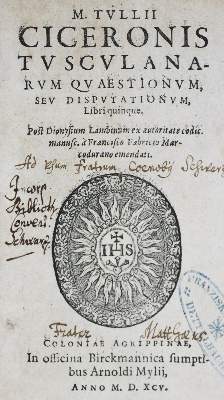 M. TVLLII
CICERONIS
TVSCVLANA-
RVM QVAESTIONVM,
SEV DISPVTATIONVM,
Libri quinque.
Post Dionysium Lambinum ex autoritate codic.
manusc. à Francisco Fabricio Mar-
codurano emendati.
Ad Usum Fratrum
Incorp.
Biblioth.
IHS
Frater Matthaeus
COLONIAE AGRIPPINAE,
In officina Birckmannica sumpti-
bus Arnoldi Mylij,
ANNO M. D. XCV.